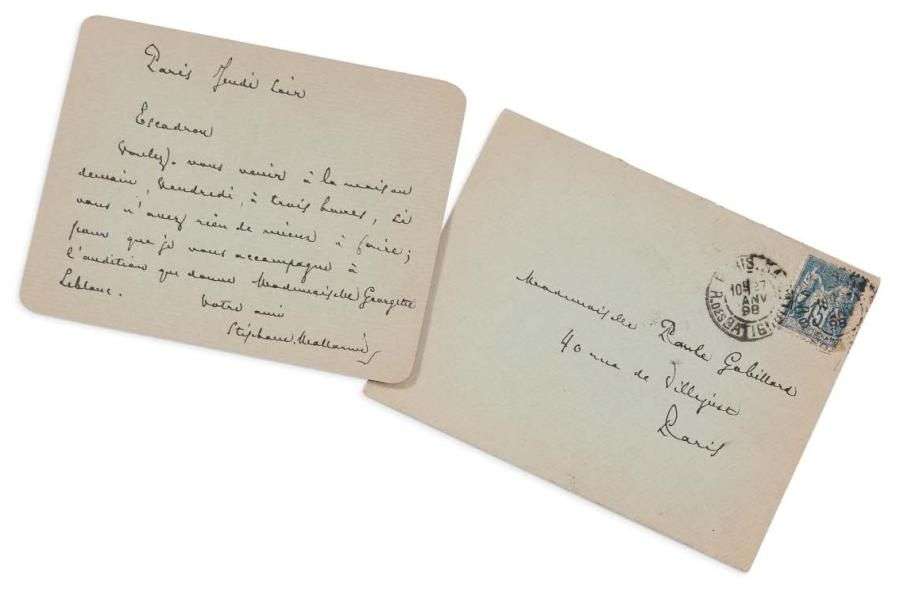 Paris Jeudi soir
Escadron
Voulez-vous venir à la maison
demain, Vendredi, à trois heures, si
vous n'avez rien de mieux à faire;
pour que je vous accompagne à
l'audition que donne Mademoiselle Georgette
Leblanc.
Votre ami
Stéphane Mallarmé
Mademoiselle Paule Gobillard
40 rue de Villejust
Paris
PARIS
10
27
JANV
98
R. DES BATIGNOLLES
15